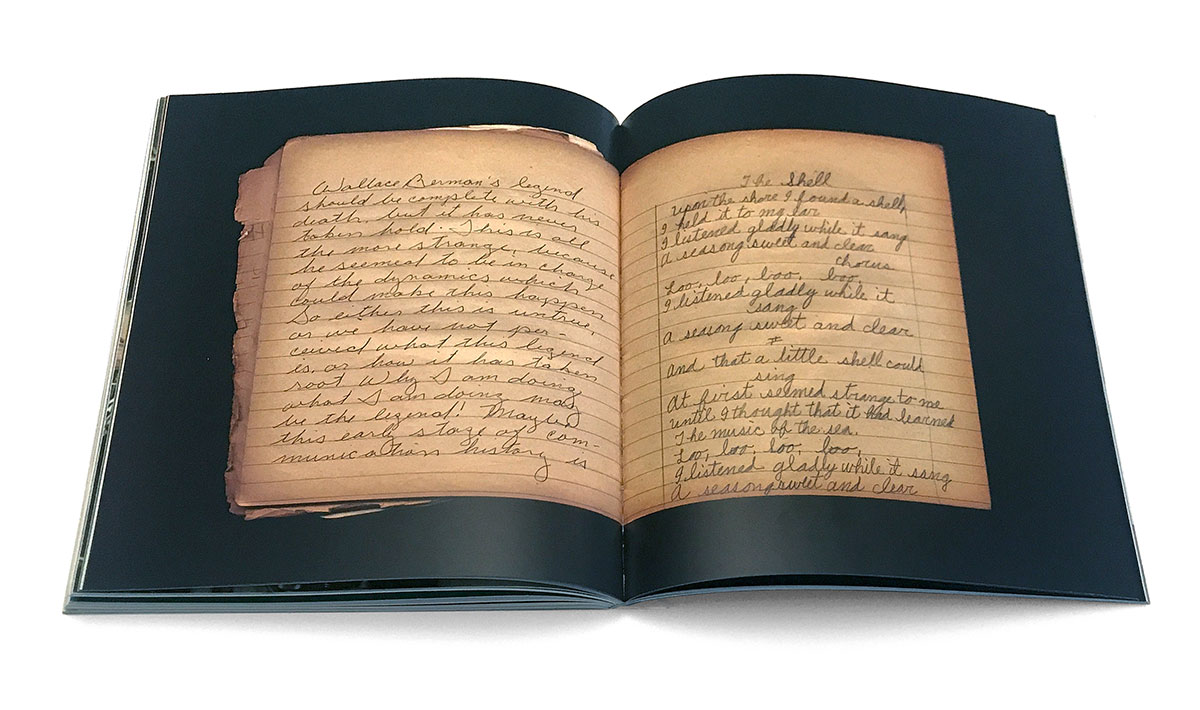 Wallace Berman's legend
should be complete with his
death, but it has never
taken hold. This is all
the more strange, because
he seemed to be in charge
of the dynamics which
could make this happen
So either this is untrue,
or we have not per
ceived what this legend
is, or how it has taken
root Why I am doing
what I am doing may
be the legend! Maybe
this early stage of com-
munications history is
The Shell
upon the shore I found a shell,
I held it to my ear
I listened gladly while it sang
A seasong sweet and clear
chorus
Loo, loo, loo, loo,
I listened gladly while it
sang
A seasong sweet and clear
And that a little shell could
sing
At first seemed strange to me
until I thought that it had learned
The music of the sea.
Loo, loo, loo, loo,
I listened gladly while it sang
A seasong sweet and clear